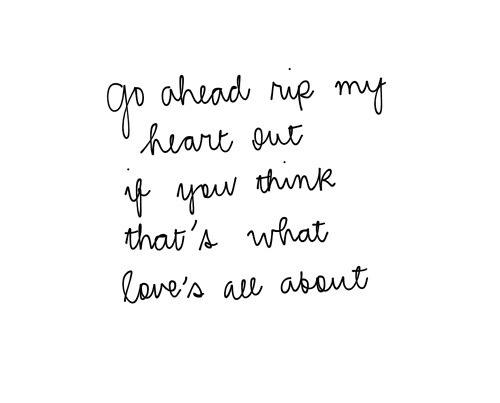 go ahead rip my
heart out
if you think
that's what
love's all about